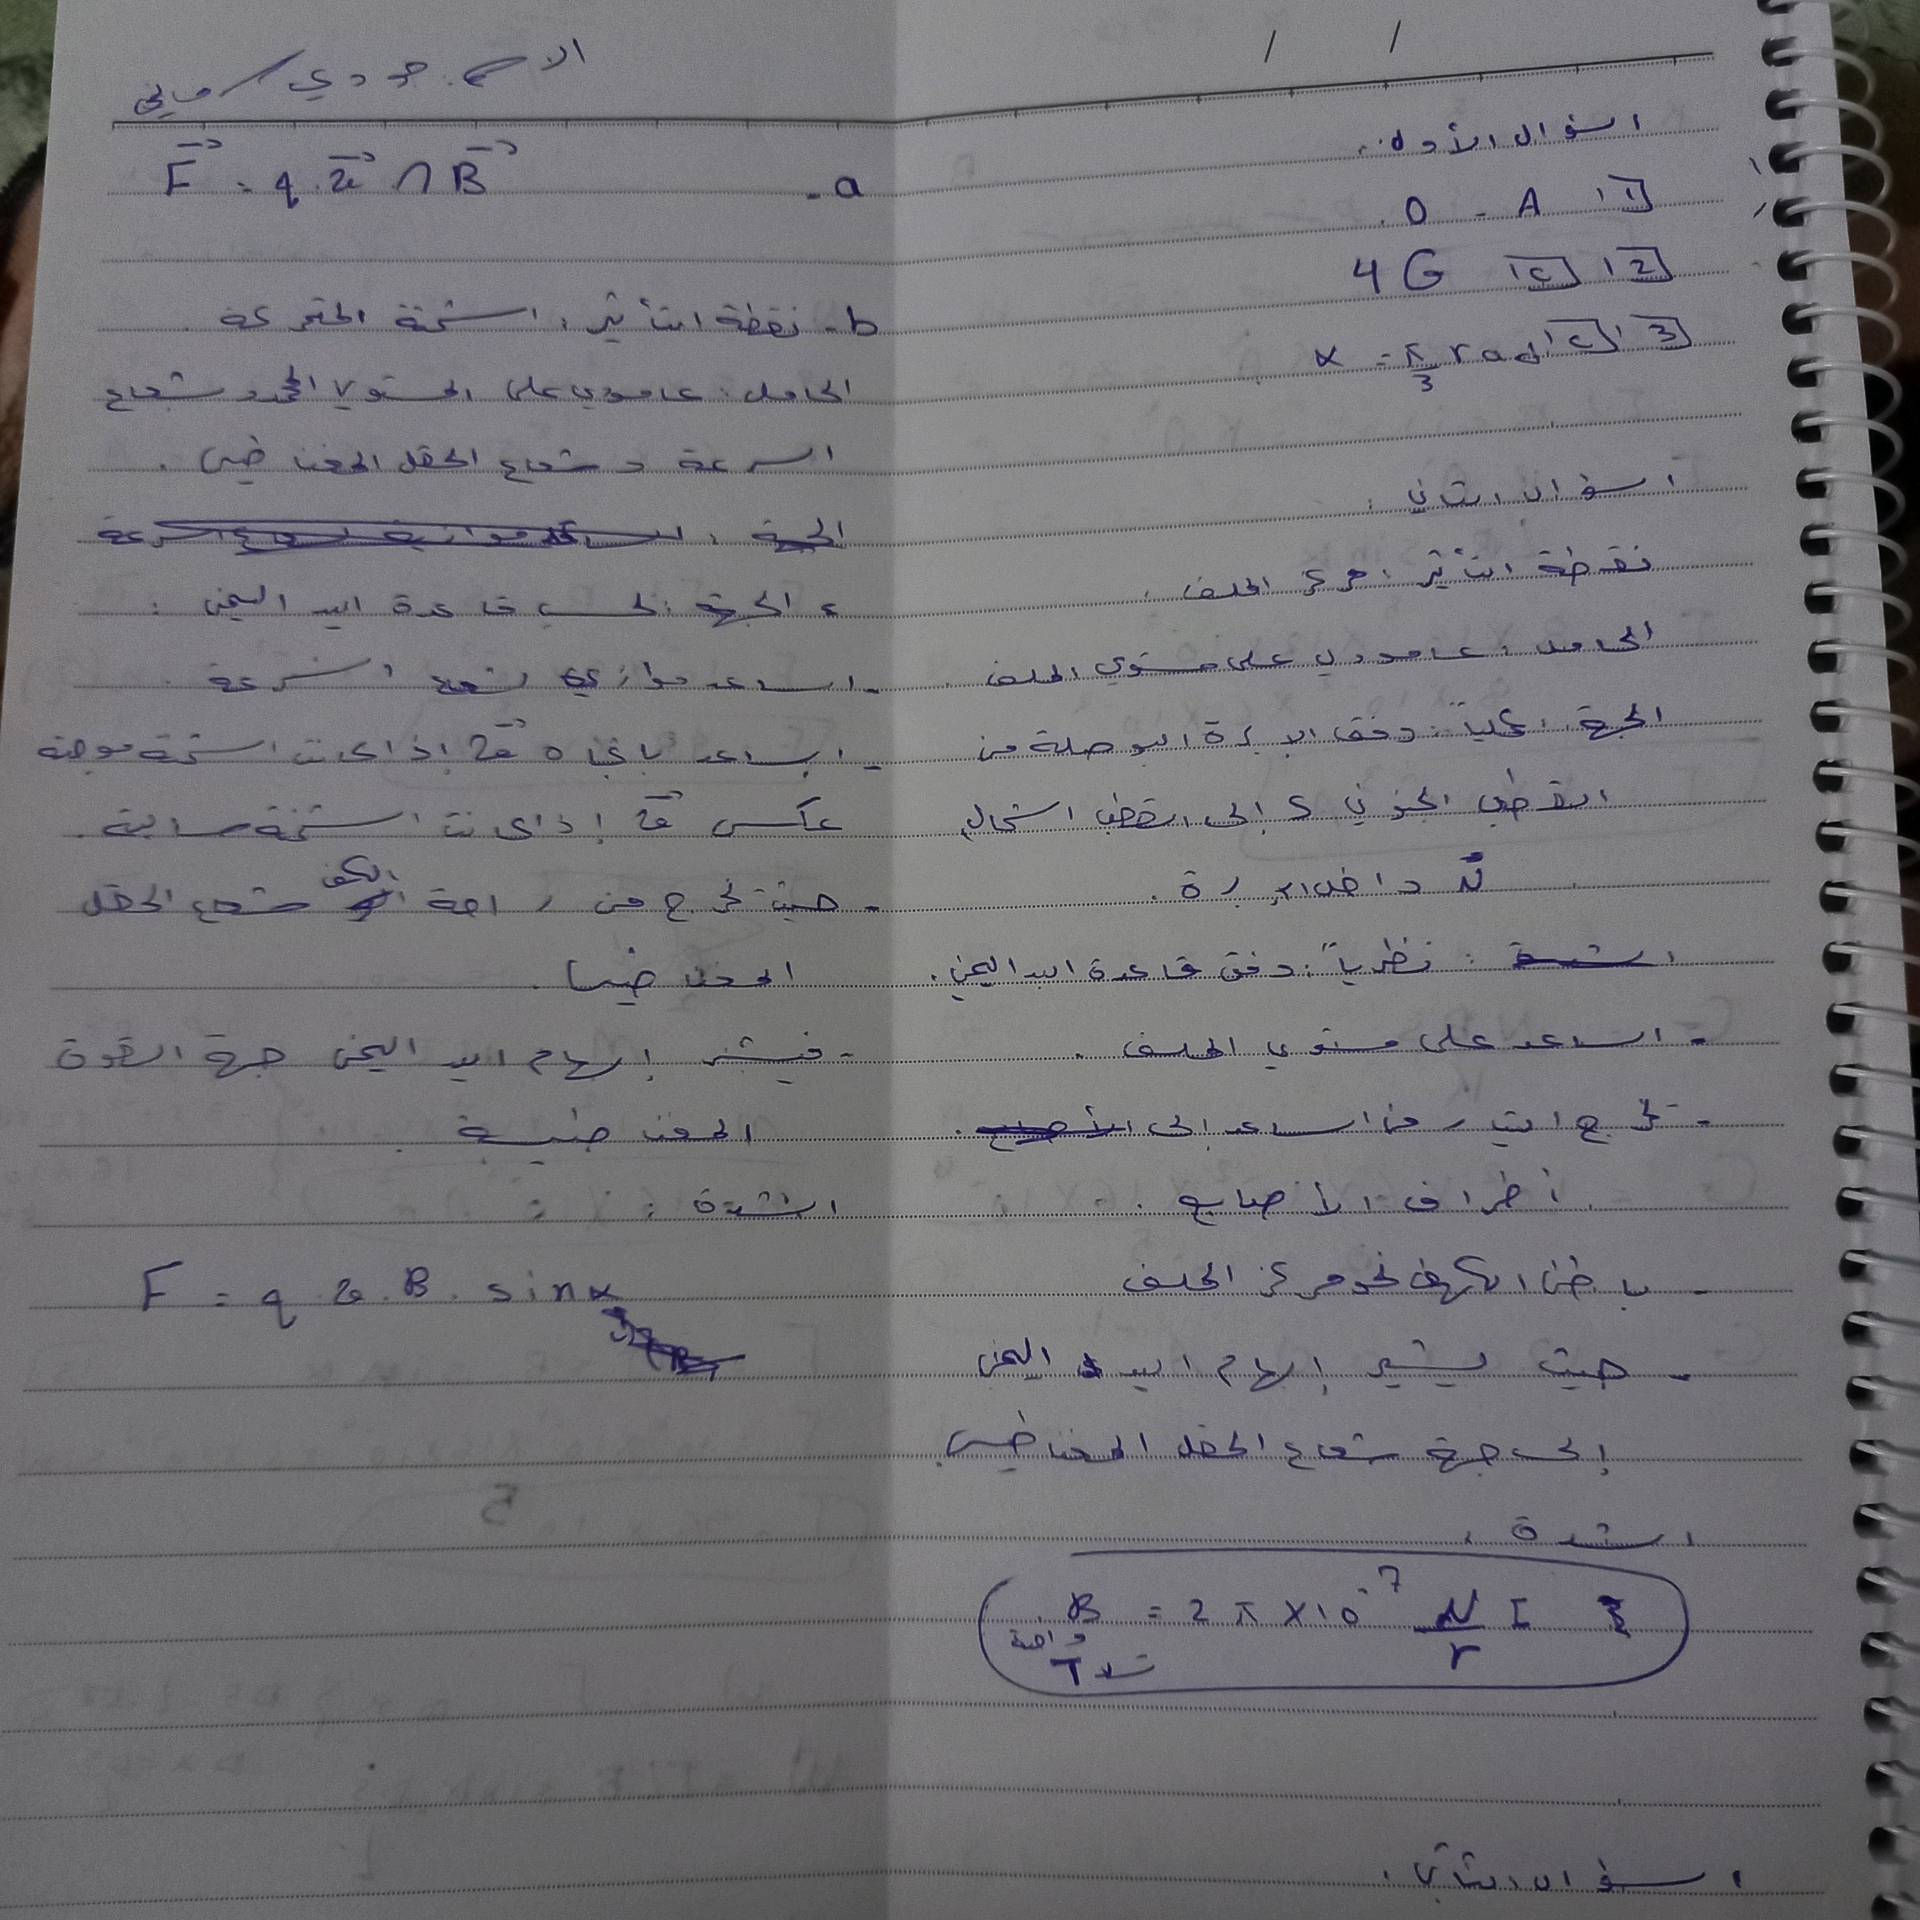 السؤال الأول:
1) A - 0.
2) c) 4G
3) c) α = π/3 rad
السؤال الثاني:
نقطة التأثير: مركز الملف.
الحامل: عامودي على مستوي الملف.
الجهة: عملياً: وفق الإبرة البوصلة من
القطب الجنوبي s إلى القطب الشمال
داخل الإبرة.
نظرياً: وفق قاعدة اليد اليمنى.
- الساعد على مستوي الملف.
- تخرج التيار من الساعد إلى
أطراف الأصابع.
- باطن الكهف نحو مركز الملف
- حيث يشير إبهام اليد اليمنى
إلى جهة شعاع الحقل المغناطيسي.
الشدة:
B = 2π × 10⁻⁷ N/r I
واحدة
تسلا T
السؤال الثاني:
الاسم: جودي
a- F⃗ = q.v⃗ ∩ B⃗
b- نقطة التأثير: الشحنة المتحركة.
الحامل: عامودي على المستوي المحدد شعاع
السرعة و شعاع الحقل المغناطيسي.
الجهة: حسب قاعدة اليد اليمنى:
- الساعد موازي لشعاع السرعة.
- الساعد باتجاه v⃗ إذا كانت الشحنة موجبة
عكس v⃗ إذا كانت الشحنة سالبة.
- حيث تخرج من راحة الكف شعاع الحقل
المغناطيسي.
- فيشير إبهام اليد اليمنى جهة القوة
المغناطيسية.
الشدة:
F = q v.B. sinα